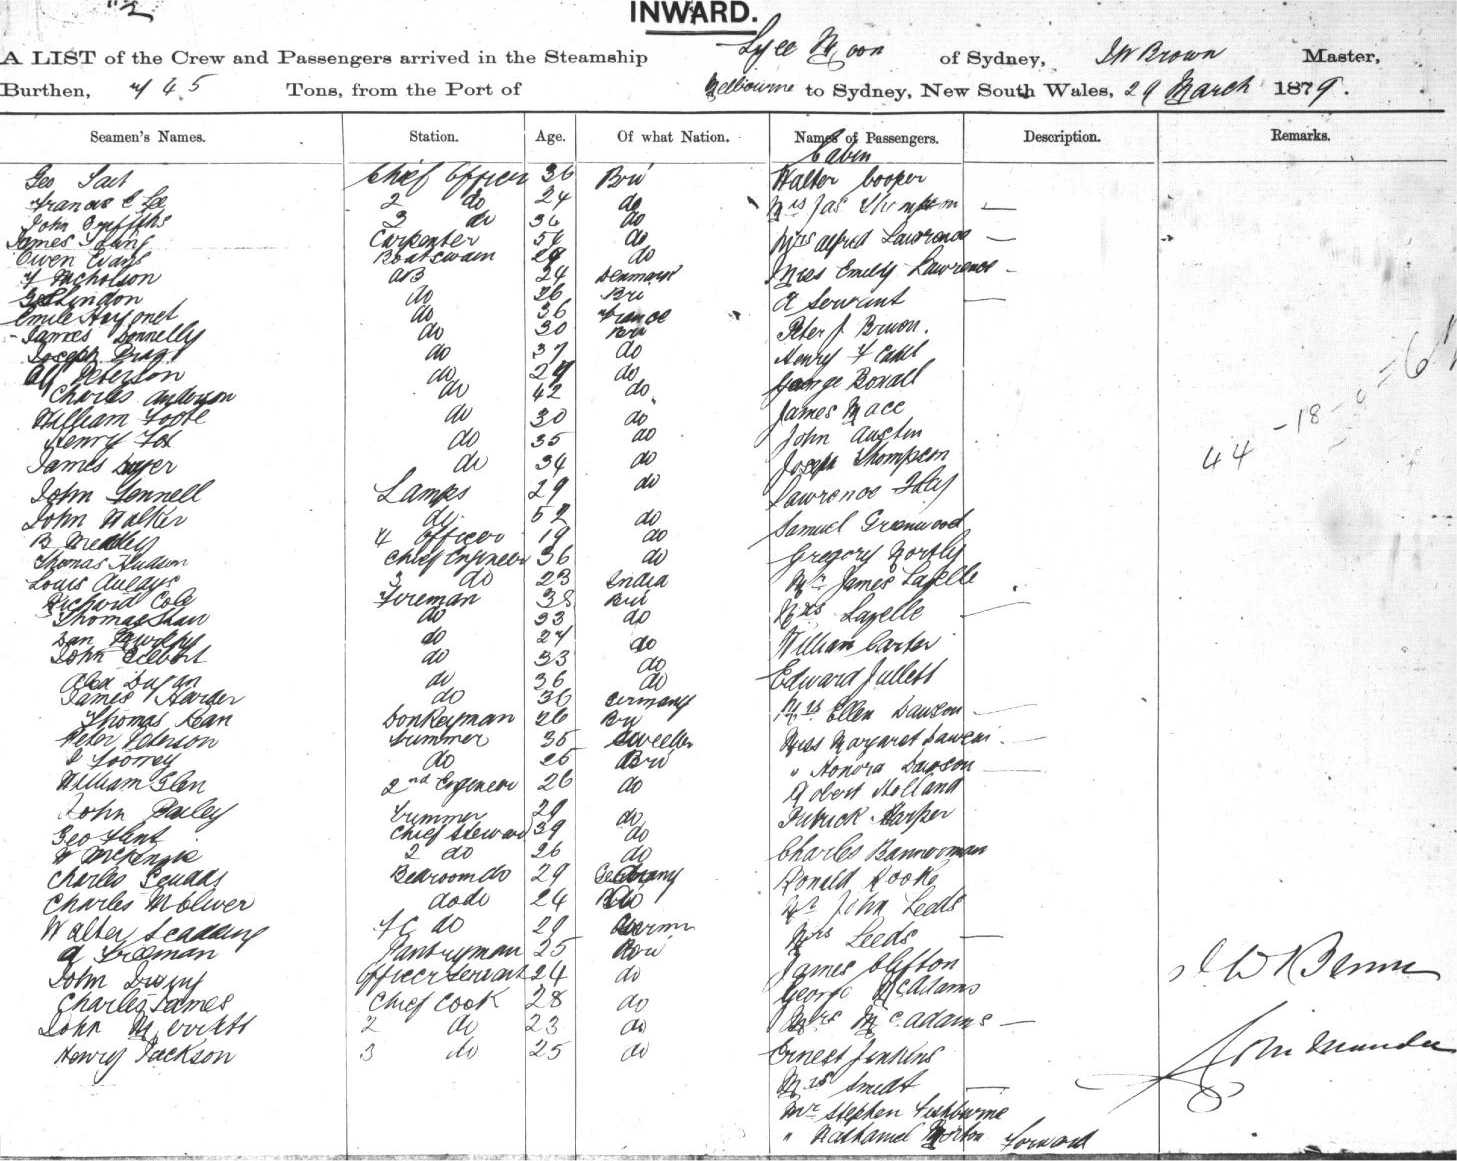 INWARD.
A LIST of the Crew and Passengers arrived in the Steamship Lyee Moon of Sydney, JW Brown Master,
Burthen, Tons, from the Port of Melbourne to Sydney, New South Wales, 29 March 1879.
Seamen's Names. Station. Age. Of what Nation. Names of Passengers. Description. Remarks.
Cabin
Geo Chief Officer 36 Bri Walter Cooper
Francis E Lee 2 do 24 do Mrs Jas Thompson
John Griffiths 3 do 36 do
James Carpenter 56 do Mrs Alfred Lawrence
Owen Evans Boatswain do
Nicholson AB 24 Denmark Miss Emily Lawrence
do 26 Bri A Servant
Emile do 36 France
James Donnelly do 30 Bri Peter J Bruen.
Joseph do 37 do Henry F
Peterson do do George Boxall
Charles Anderson do 42 do
William Foote do 30 do James Mace
Henry Fox do 35 do John Austin
James do 34 do Joseph Thompson
John Fennell Lamps 29 do Lawrence
John Walker do 52 do Samuel Greenwood
B 4 Officer 19 do
Thomas Hudson Chief Engineer 36 do Gregory
Louis 3 do 23 India Mr James Lazelle
Richard Cole Fireman 38 Bri
Thomas Shaw do 33 do Mrs Lazelle
Dan Murphy do 27 do William Carter
John Gilbert do 33 do
Alex Dugan do 36 do Edward Jullett
James Harder do 36 Germany
Thomas Kean Donkeyman 26 Bri Mrs Ellen Dawson
Peter Peterson Trimmer 35 Sweden Miss Margaret Dawson
do 25 Bri " Honora Dawson
William Glen 2nd Engineer 26 do Robert Holland
John Bailey Trimmer 29 do Patrick Harper
Geo Flint Chief Steward 39 do
W McKenzie 2 do 26 do Charles Bannerman
Charles Bedroom do 29 Germany Ronald Rooke
Charles McOliver do do 24 Mr John Leeds
Walter do 29 Mrs Leeds
A Freeman Pantryman 25 Bri
John Officer Servant 24 do James Clifton
Charles James Chief Cook 28 do George McAdams
John 2 do 23 do Mrs McAdams
Henry Jackson 3 do 25 do Ernest Jenkins
Mrs Smidt
Mr Stephen Fishburne
" Nathaniel Morton Forward
44 - 18